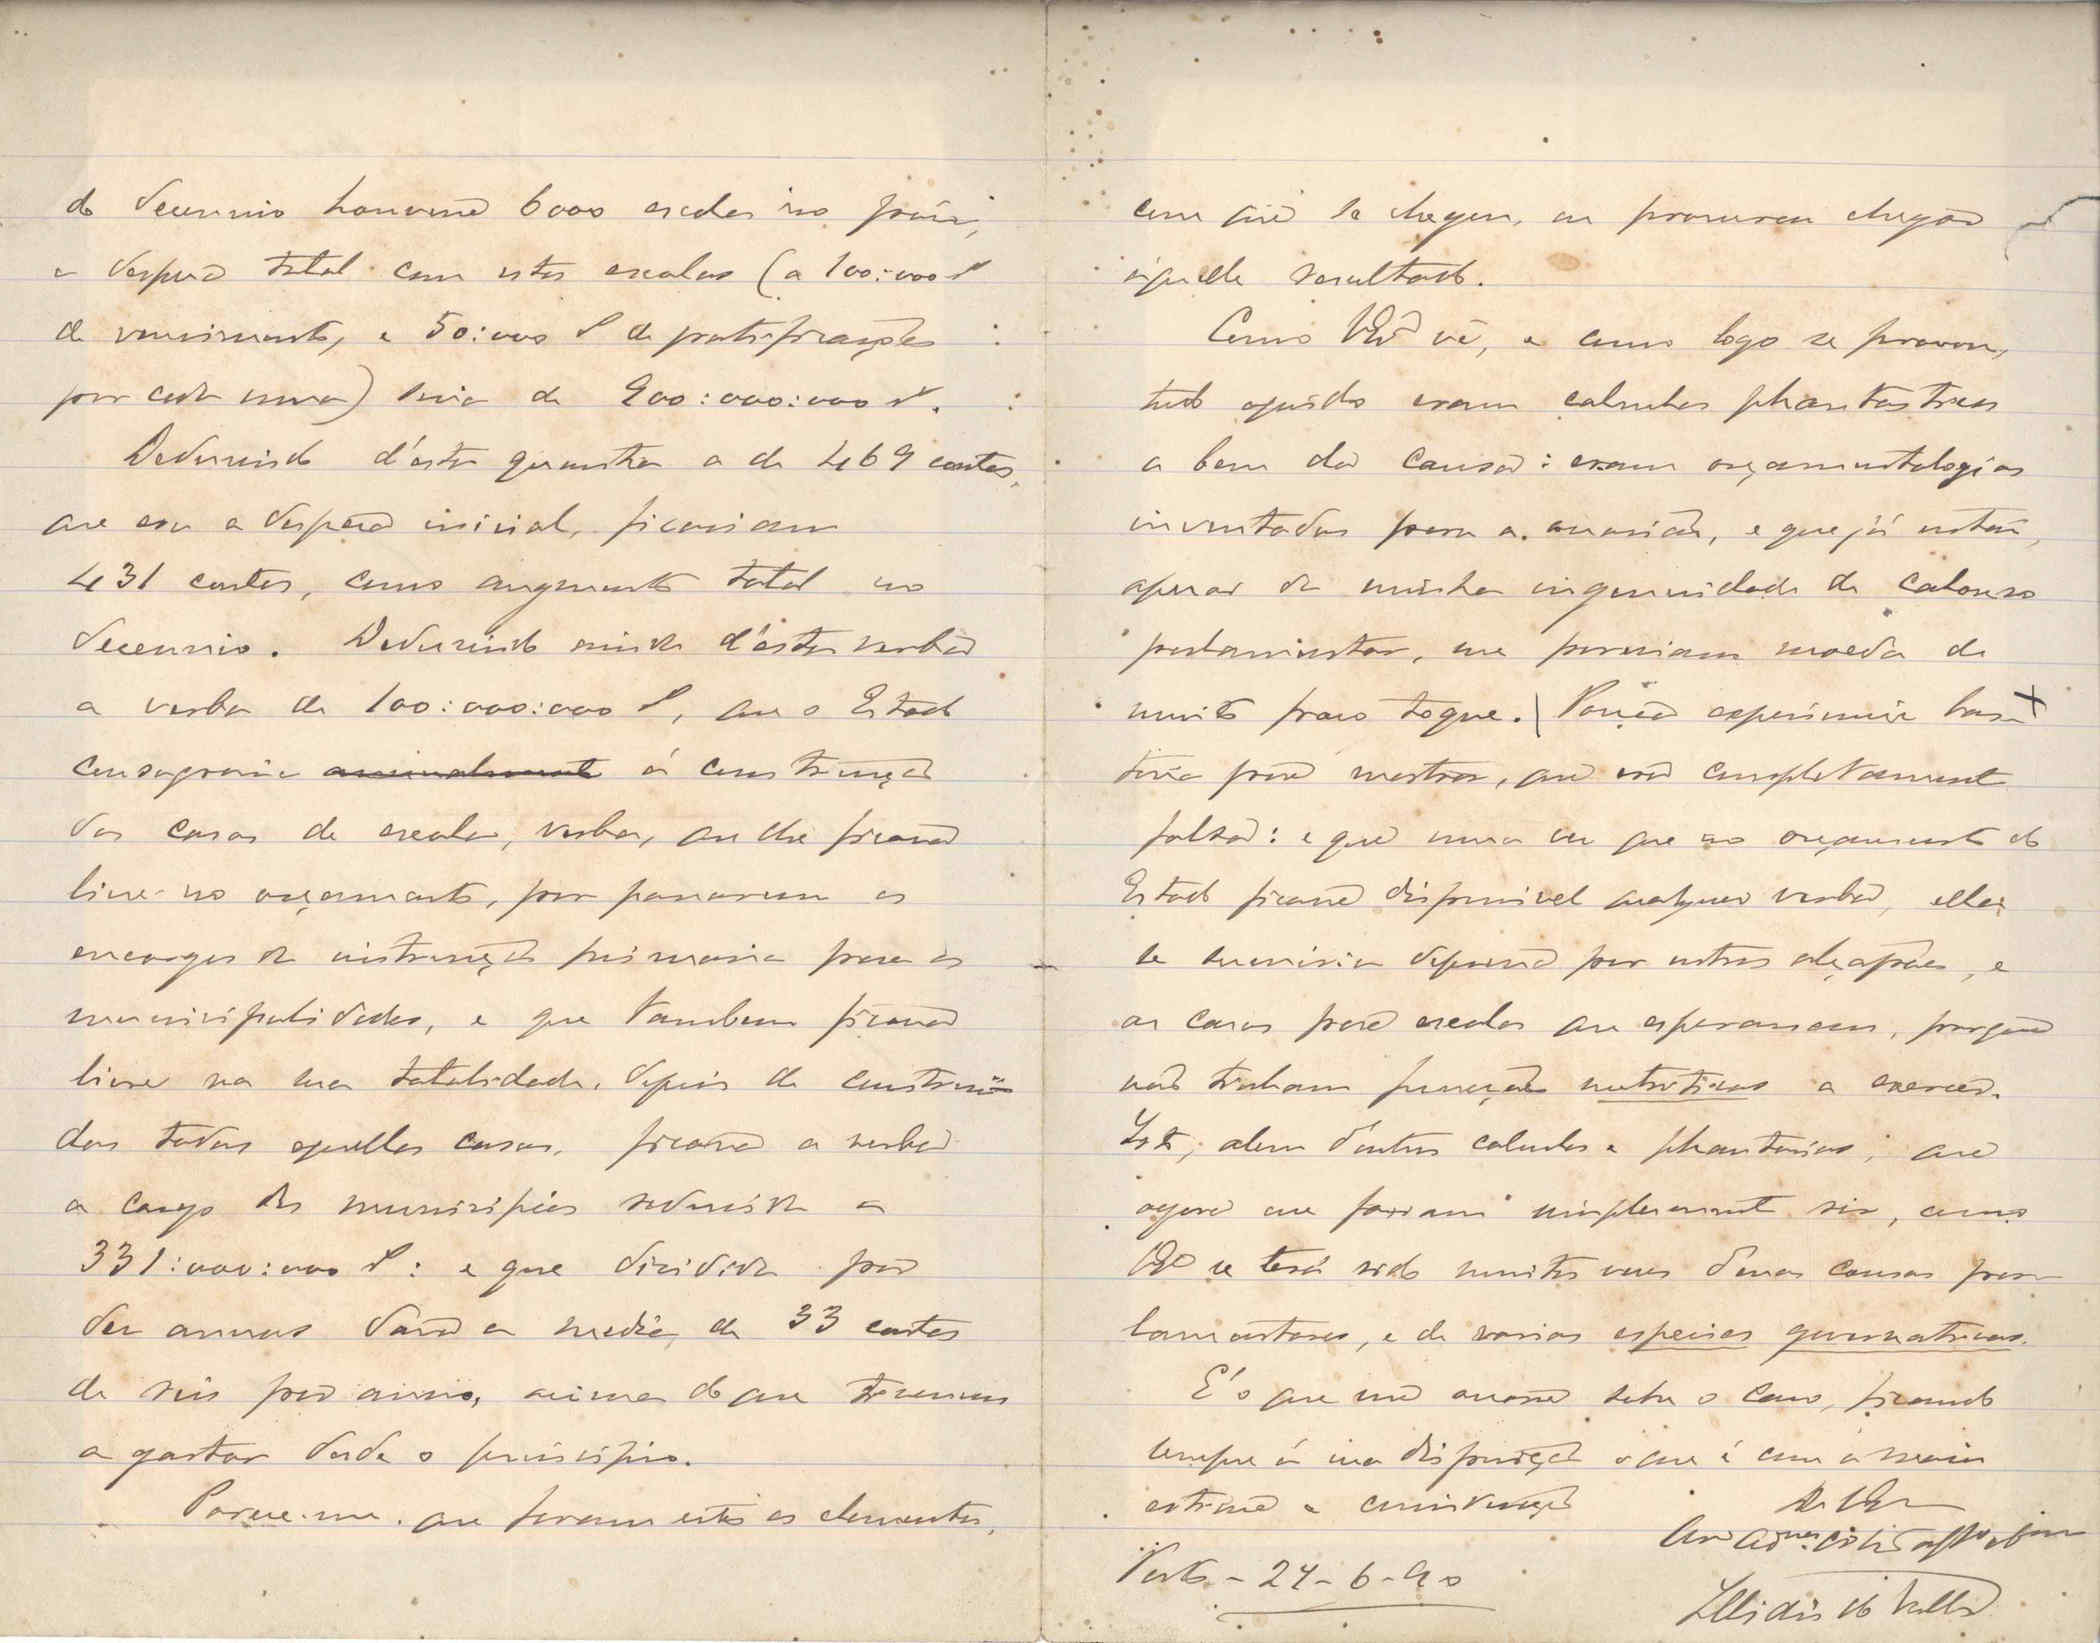 do decennio houvesse 6000 escolas no paiz,
a despesa total com estas escolas (a 100:000 rs
de vencimento, e 50:000 rs de gratificações
por cada uma) seria de 900:000:000 rs.
Deduzindo d'esta quantia a de 469 contos,
que era a despesa inicial, ficariam
431 contos, como augmento total no
decennio. Deduzindo ainda d'esta verba
a verba de 100:000:000 rs, que o Estado
consagraria annualmente á construcção
das casas de escola, verba, que lhe ficava
livre no orçamento, por passarem os
encargos da instrucção primaria para as
municipalidades, e que tambem ficava
livre na sua totalidade, depois de construi-
das todas aquellas casas, ficava a verba
a cargo dos municipios reduzida a
331:000:000 rs: e que dividida por
dez annos dava a media de 33 contos
de reis por anno, acima do que teremos
a gastar desde o principio.
Parece-me que foram estes os elementos,
com que se chegou, ou procurou chegar
áquelle resultado.
Como VEx.ª vê, e como logo se provou,
tudo aquillo eram calculos phantasticos
a bem da causa: eram orçamentologias
inventadas para a occasião, e que já então,
apesar da minha ingenuidade de calouro
parlamentar, me pareciam moeda de
muito fraco toque. Pouca experiencia bas-
taria para mostrar, que era completamente
falsa: e que uma vez que no orçamento do
Estado ficasse disponivel qualquer verba, ella
se sumiria depressa por outros alçapões, e
as casas para escolas que esperassem, porque
não tinham funcções nutritivas a exercer.
Isto, alem d'outros calculos e phantasias, que
agora me fariam simplesmente rir, como
VEx.ª se terá rido muitas vezes d'essas cousas par-
lamentares, e de varias especies governativas.
É o que me occorre sobre o caso, ficando
sempre á sua disposição o que é com a maior
estima e consideração
De VEx.ª
Porto - 24-6-90